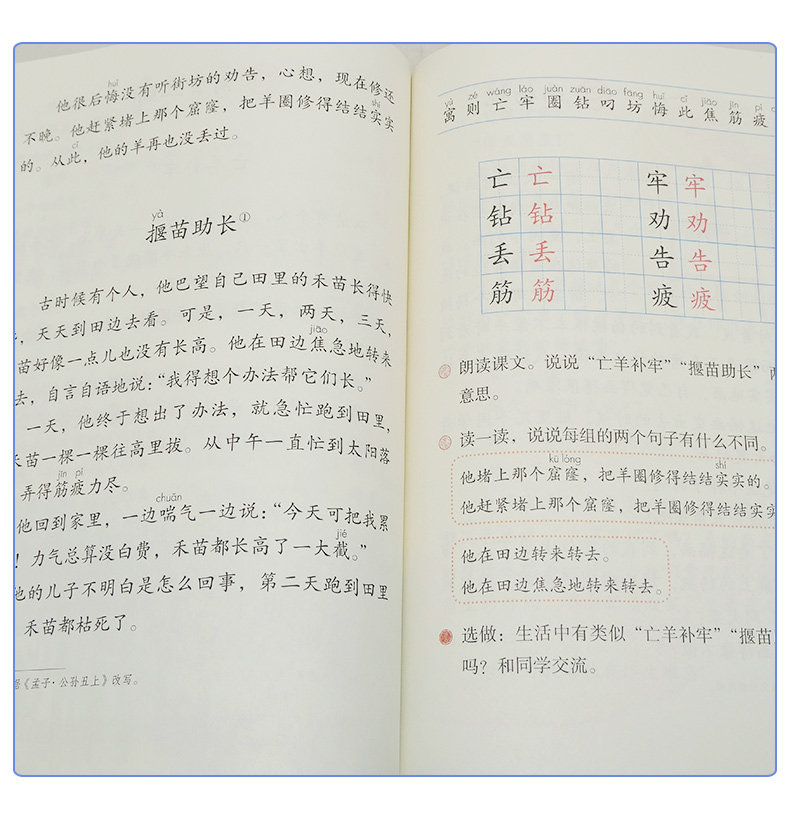 huǐ
他很后悔没有听街坊的劝告，心想，现在修还
不晚。他赶紧堵上那个窟窿，把羊圈修得结结实实
shí
cǐ
的。从此，他的羊再也没丢过。
yà
揠苗助长①
古时候有个人，他巴望自己田里的禾苗长得快
，天天到田边去看。可是，一天，两天，三天，
jiāo
苗好像一点儿也没有长高。他在田边焦急地转来
去，自言自语地说：“我得想个办法帮它们长。”
一天，他终于想出了办法，就急忙跑到田里，
禾苗一棵一棵往高里拔。从中午一直忙到太阳落
jīn pí
弄得筋疲力尽。
chuǎn
他回到家里，一边喘气一边说：“今天可把我累
jié
！力气总算没白费，禾苗都长高了一大截。”
他的儿子不明白是怎么回事，第二天跑到田里
禾苗都枯死了。
《孟子·公孙丑上》改写。
yù zé wáng láo juàn zuān diāo fāng huǐ cǐ jiāo jīn pí
寓 则 亡 牢 圈 钻 叼 坊 悔 此 焦 筋 疲
亡 亡 牢 牢
钻 钻 劝 劝
丢 丢 告 告
筋 筋 疲 疲
朗读课文。说说“亡羊补牢”“揠苗助长”
意思。
读一读，说说每组的两个句子有什么不同。
kū lóng shí
他堵上那个窟窿，把羊圈修得结结实实的。
他赶紧堵上那个窟窿，把羊圈修得结结实实
他在田边转来转去。
他在田边焦急地转来转去。
选做：生活中有类似“亡羊补牢”“揠苗
吗？和同学交流。